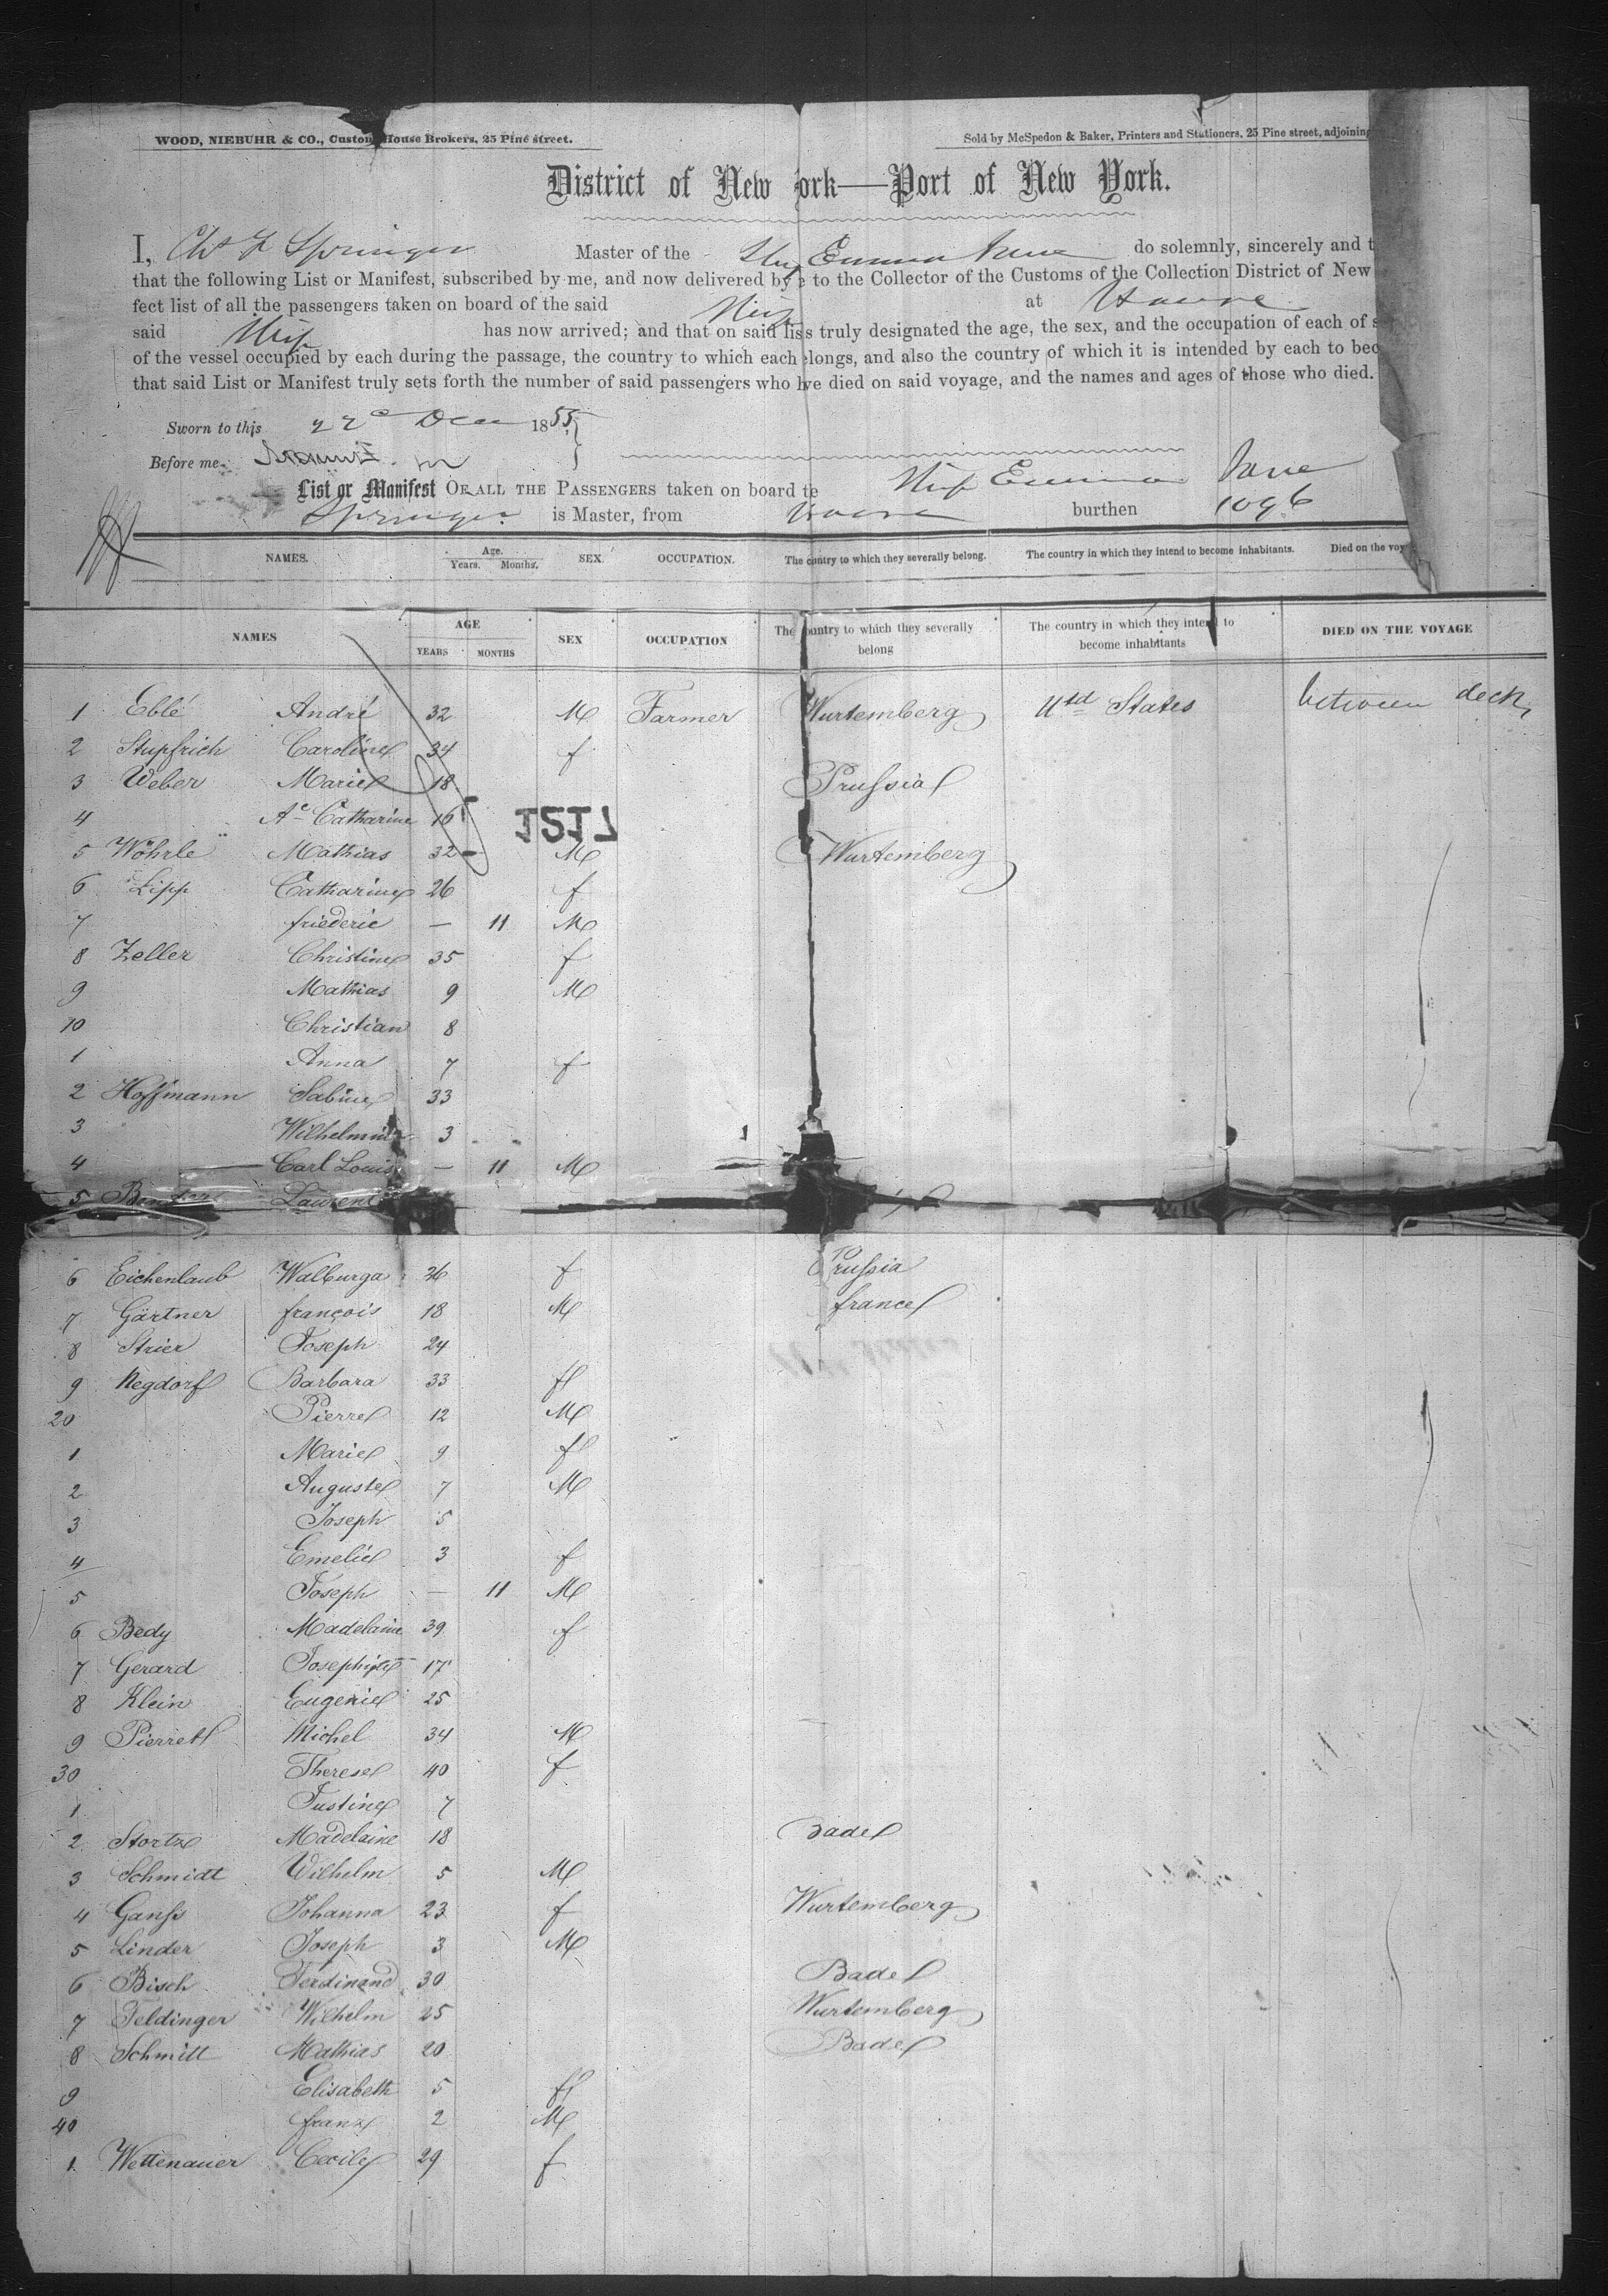 WOOD, NIEBUHR & CO., Custom House Brokers, 25 Pine street.
Sold by McSpedon & Baker, Printers and Stationers, 25 Pine street, adjoining
District of New ork—Port of New York.
I, Chs F Springer Master of the Ship Emma Jane do solemnly, sincerely and t
that the following List or Manifest, subscribed by me, and now delivered by e to the Collector of the Customs of the Collection District of New
fect list of all the passengers taken on board of the said Ship at Havre
said Ship has now arrived; and that on said lis s truly designated the age, the sex, and the occupation of each of s
of the vessel occupied by each during the passage, the country to which each elongs, and also the country of which it is intended by each to bec
that said List or Manifest truly sets forth the number of said passengers who h ve died on said voyage, and the names and ages of those who died.
Sworn to this 22d Dec 1855
Before me
List or Manifest OF ALL THE PASSENGERS taken on board t e Ship Emma Jane
Springer is Master, from Havre burthen 1096
NAMES. Age. Years. Months. SEX. OCCUPATION. The c untry to which they severally belong. The country in which they intend to become inhabitants. Died on the voy
NAMES AGE YEARS MONTHS SEX OCCUPATION The ountry to which they severally belong The country in which they intend to become inhabitants DIED ON THE VOYAGE
1 Eblé André 32 M Farmer Wurtemberg Utd States between deck,
2 Stupfrich Caroline 34 f
3 Weber Marie 18 Prussia
4 Ae Catharine 16
1517
5 Wöhrle Mathias 32 M Wurtemberg
6 Lipp Catharine 26 f
7 friederic — 11 M
8 Zeller Christine 35 f
9 Mathias 9 M
10 Christian 8
1 Anna 7 f
2 Hoffmann Sabine 33
3 Wilhelmine 3
4 Carl Louis — 11 M
5 Laurent
6 Eichenlaub Walburga 26 f Prussia
7 Gärtner françois 18 M france
8 Strier Joseph 24
9 Negdorf Barbara 33 f
20 Pierre 12 M
1 Marie 9 f
2 Auguste 7 M
3 Joseph 5
4 Emelie 3 f
5 Joseph — 11 M
6 Bedy Madelaine 39 f
7 Gerard Josephine 17
8 Klein Eugenie 25
9 Pierret Michel 34 M
30 Therese 40 f
1 Justine 7
2 Stortz Madelaine 18 Bade
3 Schmidt Wilhelm 5 M
4 Ganss Johanna 23 f Wurtemberg
5 Linder Joseph 3 M
6 Bisch Ferdinand 30 Bade
7 Feldinger Wilhelm 25 Wurtemberg
8 Schmitt Mathias 20 Bade
9 Elisabeth 5 f
40 franz 2 M
1 Wettenauer Cecile 29 f